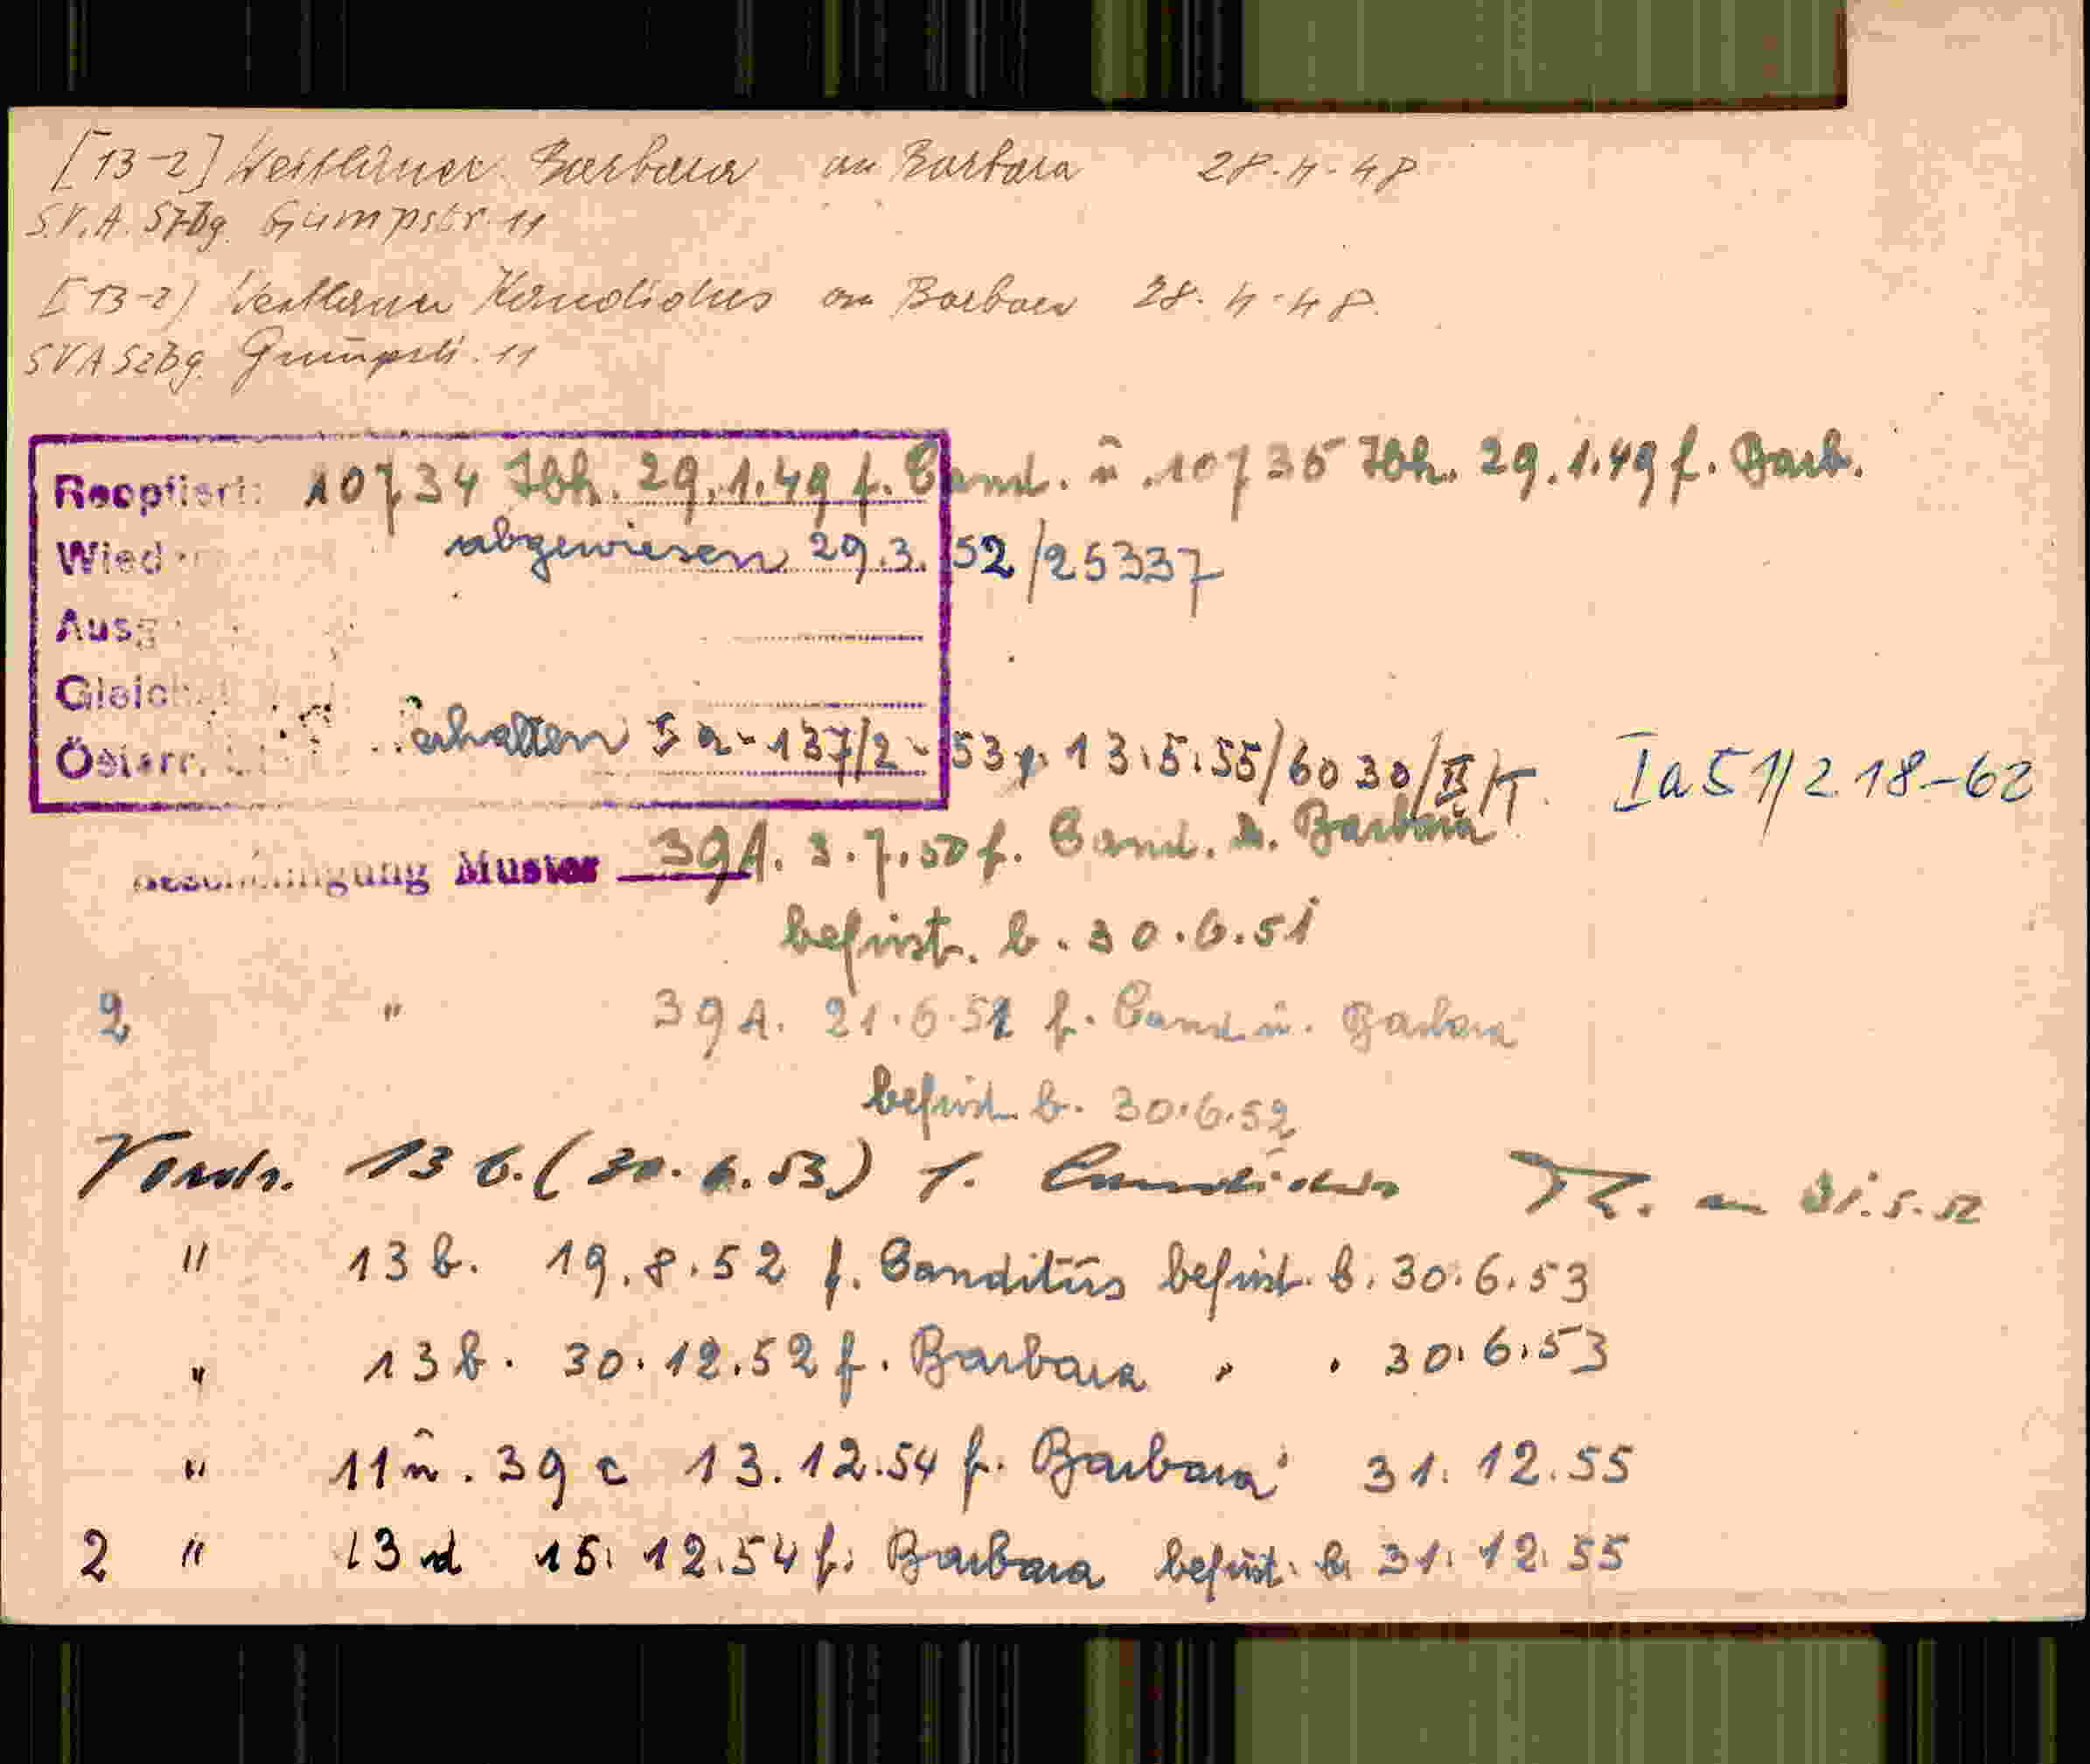 [13-2] Weitlaner Barbara an Barbara 28.4.48
S.V.A. Szbg. Gumpstr. 11
[13-2) Weitlaner Kandidus an Barbara 28.4.48.
SVA Szbg. Gumpstr. 11
Reoptiert: 10734 Jbk. 29.1.49 f. Cand. u. 10735 Jbk. 29.1.49 f. Barb.
Wied abgewiesen 29.3.52/25337
Ausg
Gleich
Österr. erhalten Ia-137/2-53 v. 13.5.55/6030/II/K Ia 51/218-62
Bescheinigung Muster 39A. 3.7.50 f. Cand. u. Barbara
befrist. b. 30.6.51
2 " 39A. 21.6.51 f. Cand u. Barbara
befrist. b. 30.6.52
Vordr. 13 b. (30.6.53) f. Candidus an 31.5.52
" 13 b. 19.8.52 f. Canditus befrist. b. 30.6.53
" 13 b. 30.12.52 f. Barbara " " 30.6.53
" 11 u. 39 c 13.12.54 f. Barbara 31.12.55
2 " 13 d 15.12.54 f. Barbara befrist. b. 31.12.55